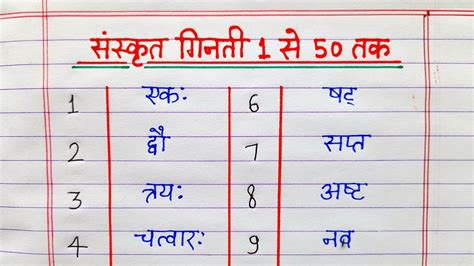 संस्कृत गिनती 1 से 50 तक
1 एकः 6 षट्
2 द्वौ 7 सप्त
3 त्रयः 8 अष्ट
4 चत्वारः 9 नव